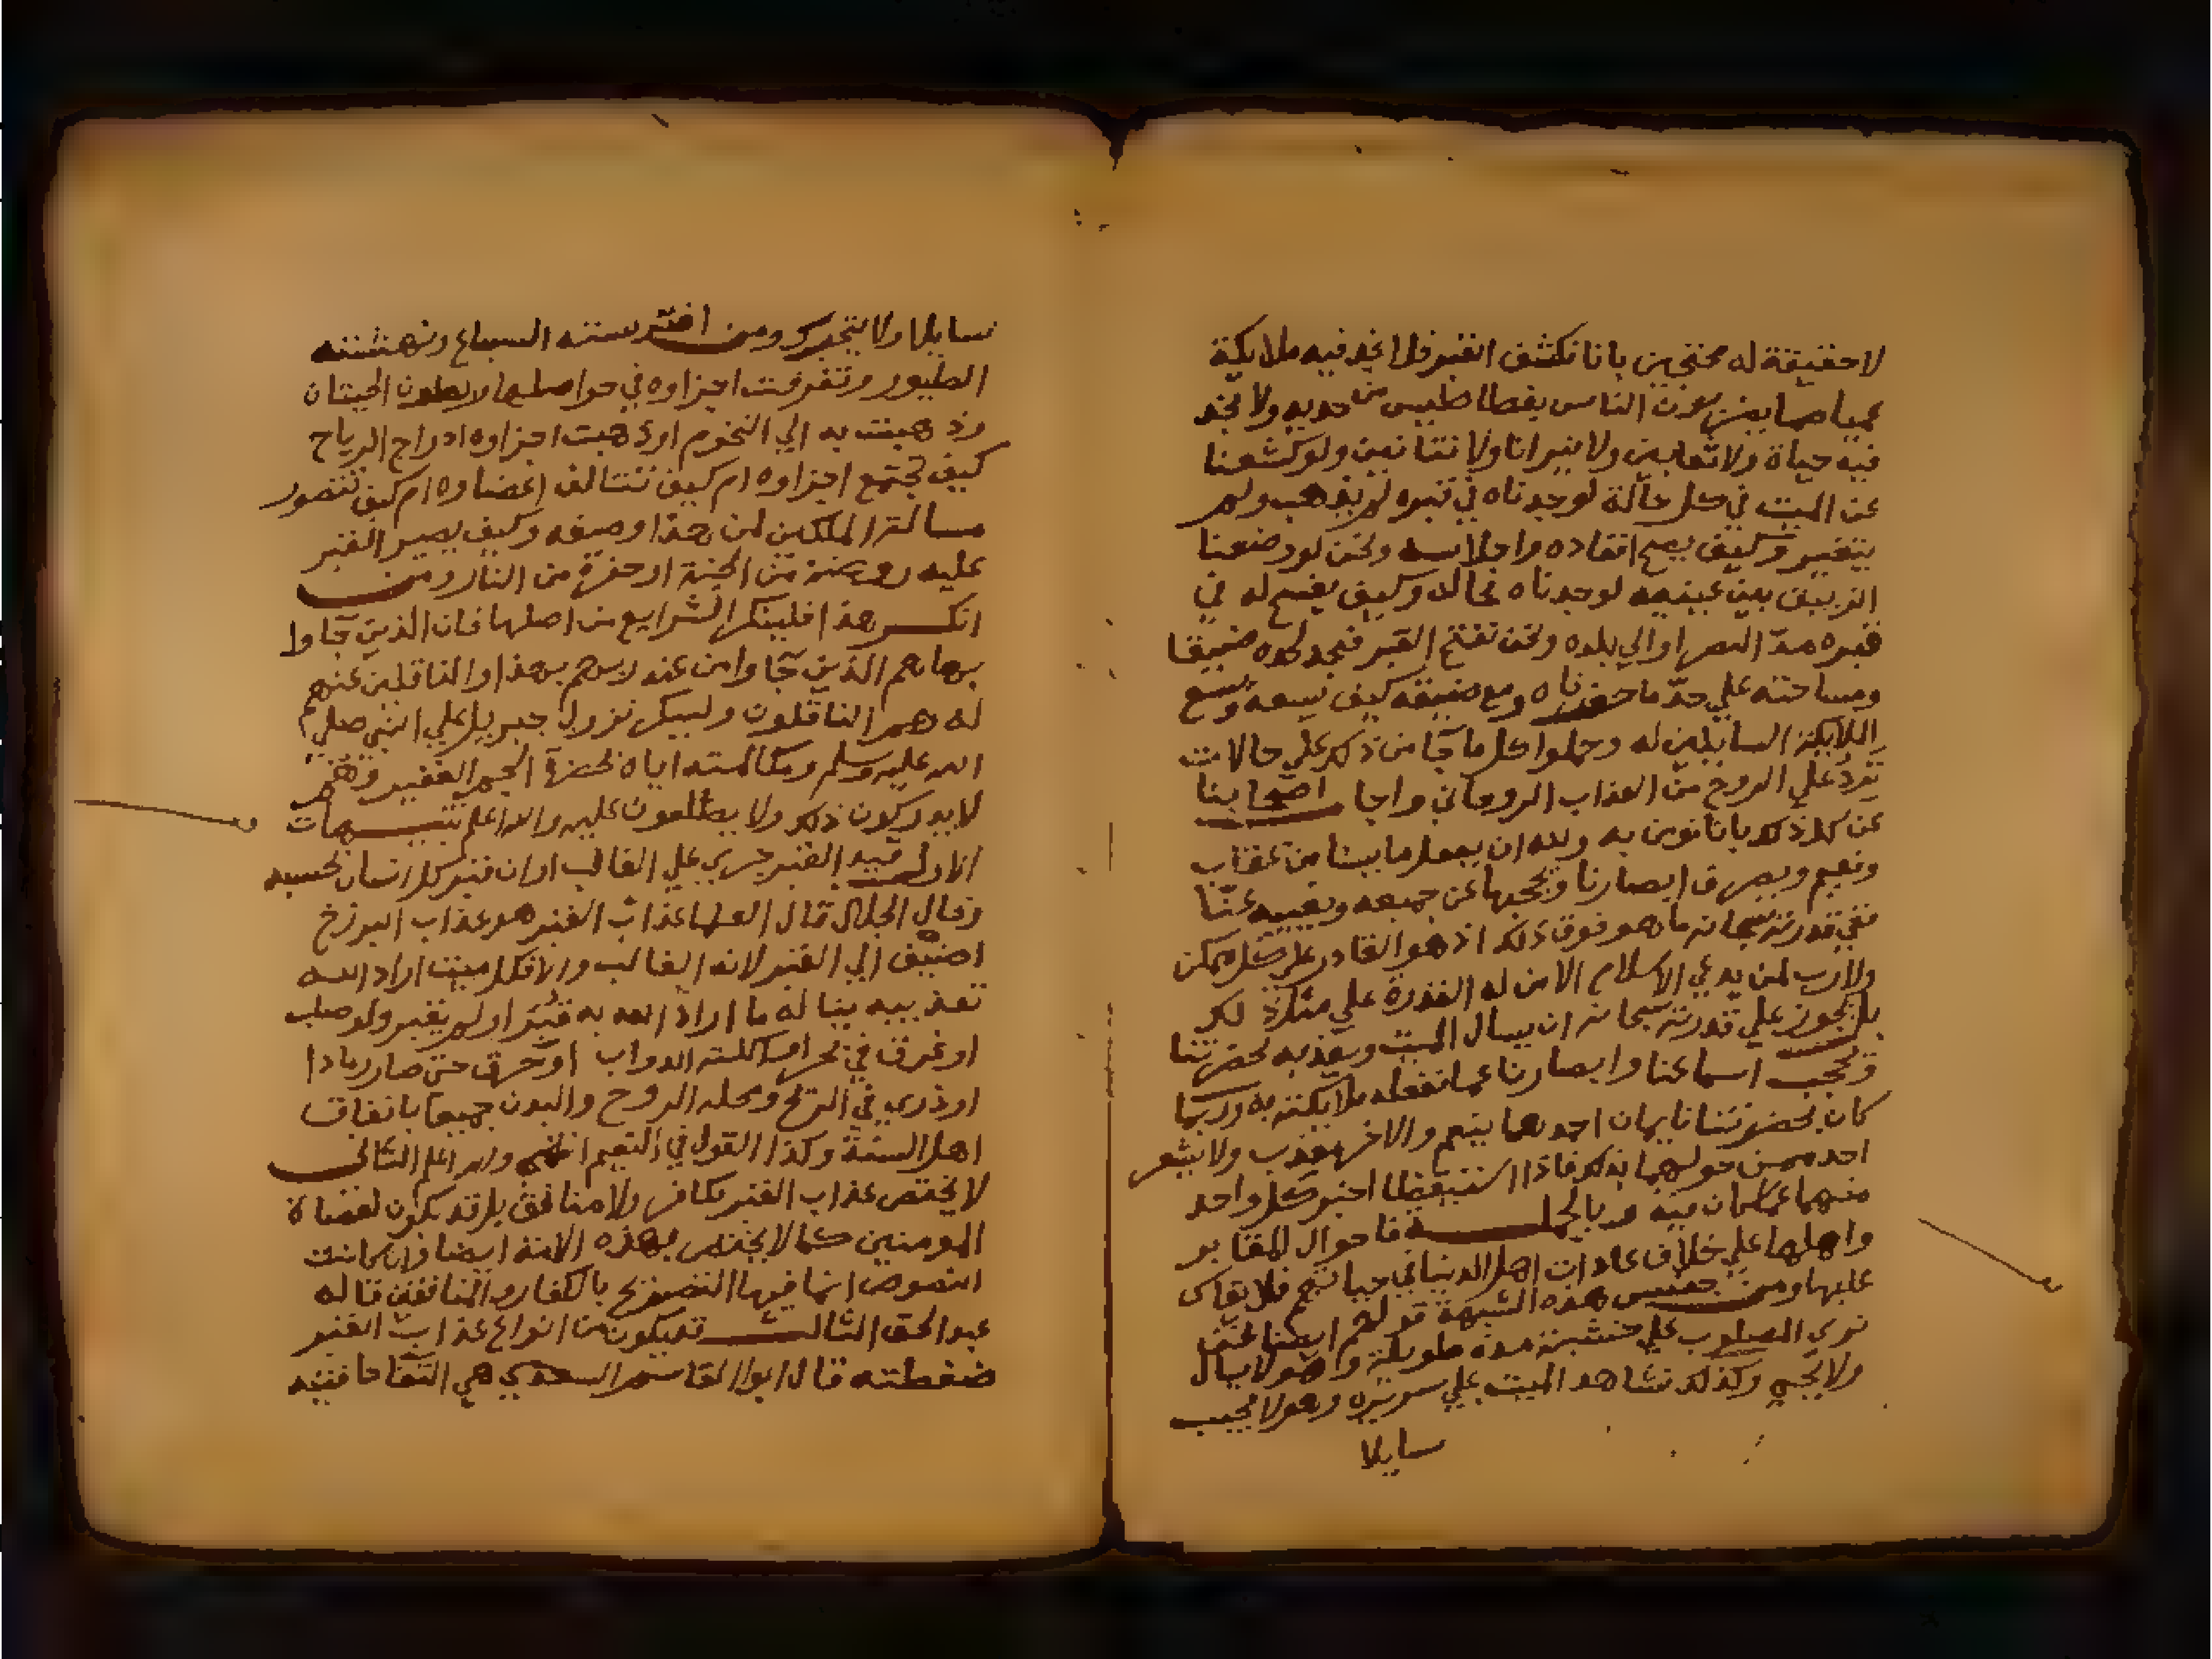 لا حقيقة له محتجين بانا نكشف القبر فلا نجد فيه ملايكة
عميا صما يضربون الناس بفطاطيس من حديد ولا نجد
فيه حياة ولا ثعابين ولا نيرانا ولا تنانين ولو كشفنا
عن الميت في كل حالة لوجدناه في قبره لم يذهب ولم
يتغير وكيف يصح اقعاده واجلاسه ونحن لو وضعنا
الزيبق بين عينيه لوجدناه بحاله وكيف يفسح له في
قبره مد البصر او الي بلده ونحن نفتح القبر فنجد لحده ضيقا
ومساحته علي حد ما حفرناه ومع ضيقه كيف يسعه ويسع
الملايكة السايلين له وحملوا كل ما جآ من ذكر علي حالات
ترد علي الروح من العذاب الروحاني واجا اصحابنا
عن كل ذلك بانا نومن به ولله ان يفعل ما يشا من عقاب
ونعيم ويصرف ابصارنا ويحجبها عن جميعه ويغيبه عنا
ففي قدرته سبحانه ما هو فوق ذلك اذ هو القادر علي كل ممكن
ولا رب لمن يدعي الاسلام الا من له القدرة علي مثل ذلك
بل نجوز علي قدرته سبحانه ان يسال الميت ويعذبه بحضرتنا
وتحجب اسماعنا وابصارنا عما تفعله ملايكته به وربما
كان بحضرتنا نايمان احدهما ينعم والاخر يعذب ولا يشعر
احد ممن حولهما بذلك فاذا استيقظا اخبر كل واحد
منهما عما كان فيه وبالجملة فاحوال المقابر
واهلها علي خلاف عادات اهل الدنيا في حياتهم فلا يقاس
عليها ومن جنس هذه الشبهة قولهم ايضا نحن
نري المصلوب علي خشبته مدة طويلة وهو لا يسال
ولا يحيي وكذلك نشاهد الميت علي سريره وهو لا يجيب
سايلا
سايلا ولا يتحرك ومن افترسته السباع ونهشته
الطيور وتفرقت اجزاوه في حواصلها وبطون الحيتان
وذهبت به الي التخوم او ذهبت اجزاوه ادراج الرياح
كيف تجتمع اجزاوه ام كيف تتالف اعضاوه ام كيف تتصور
مسالة الملكين لمن هذا وصفه وكيف يصير القبر
عليه روضة من الجنة او حفرة من النار ومن
انكر هذا فلينكر الشرايع من اصلها فان الذين جآوا
بها هم الذين جآوا من عند ربهم بهذا والناقلين عنهم
له هم الناقلون ولينكر نزول جبريل علي النبي صلي
الله عليه وسلم ومكالمته اياه بحضرة الجم الغفير وهم
لا يدركون ذلك ولا يطلعون عليه والله اعلم تنبيهات
الاول قيد القبر جري علي الغالب او ان قبر كل انسان بحسبه
وقال الجلال قال العلما عذاب القبر هو عذاب البرزخ
اضيف الي القبر لانه الغالب والا فكل ميت اراد الله
تعذيبه يناله ما اراد الله به قبر او لم يقبر ولو صلب
او غرق في بحر او اكلته الدواب او حرق حتي صار رمادا
او ذري في الريح ومحله الروح والبدن جميعا باتفاق
اهل السنة وكذا القول في النعيم انتهي والله اعلم الثاني
لا يختص عذاب القبر بكافر ولا منافق بل قد يكون لعصاة
المومنين كما لا يختص بهذه الامة ايضا وان كانت
النصوص انما فيها التصريح بالكفار والمنافقين قاله
عبد الحق الثالث قد يكون من انواع عذاب القبر
ضغطته قال ابو القاسم السعدي هي التقا حافتيه